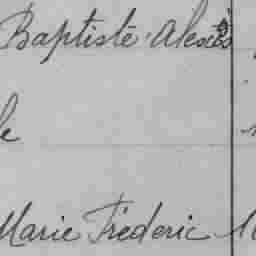 Baptiste Alexis
le
Marie Fréderic